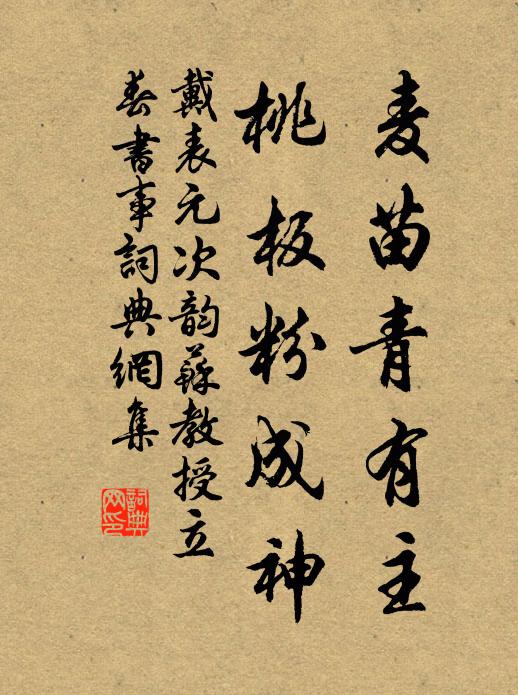 麦苗青有主
桃板粉成神
戴表元次韵蘇教授立
春書事詞典網集
詞典网印